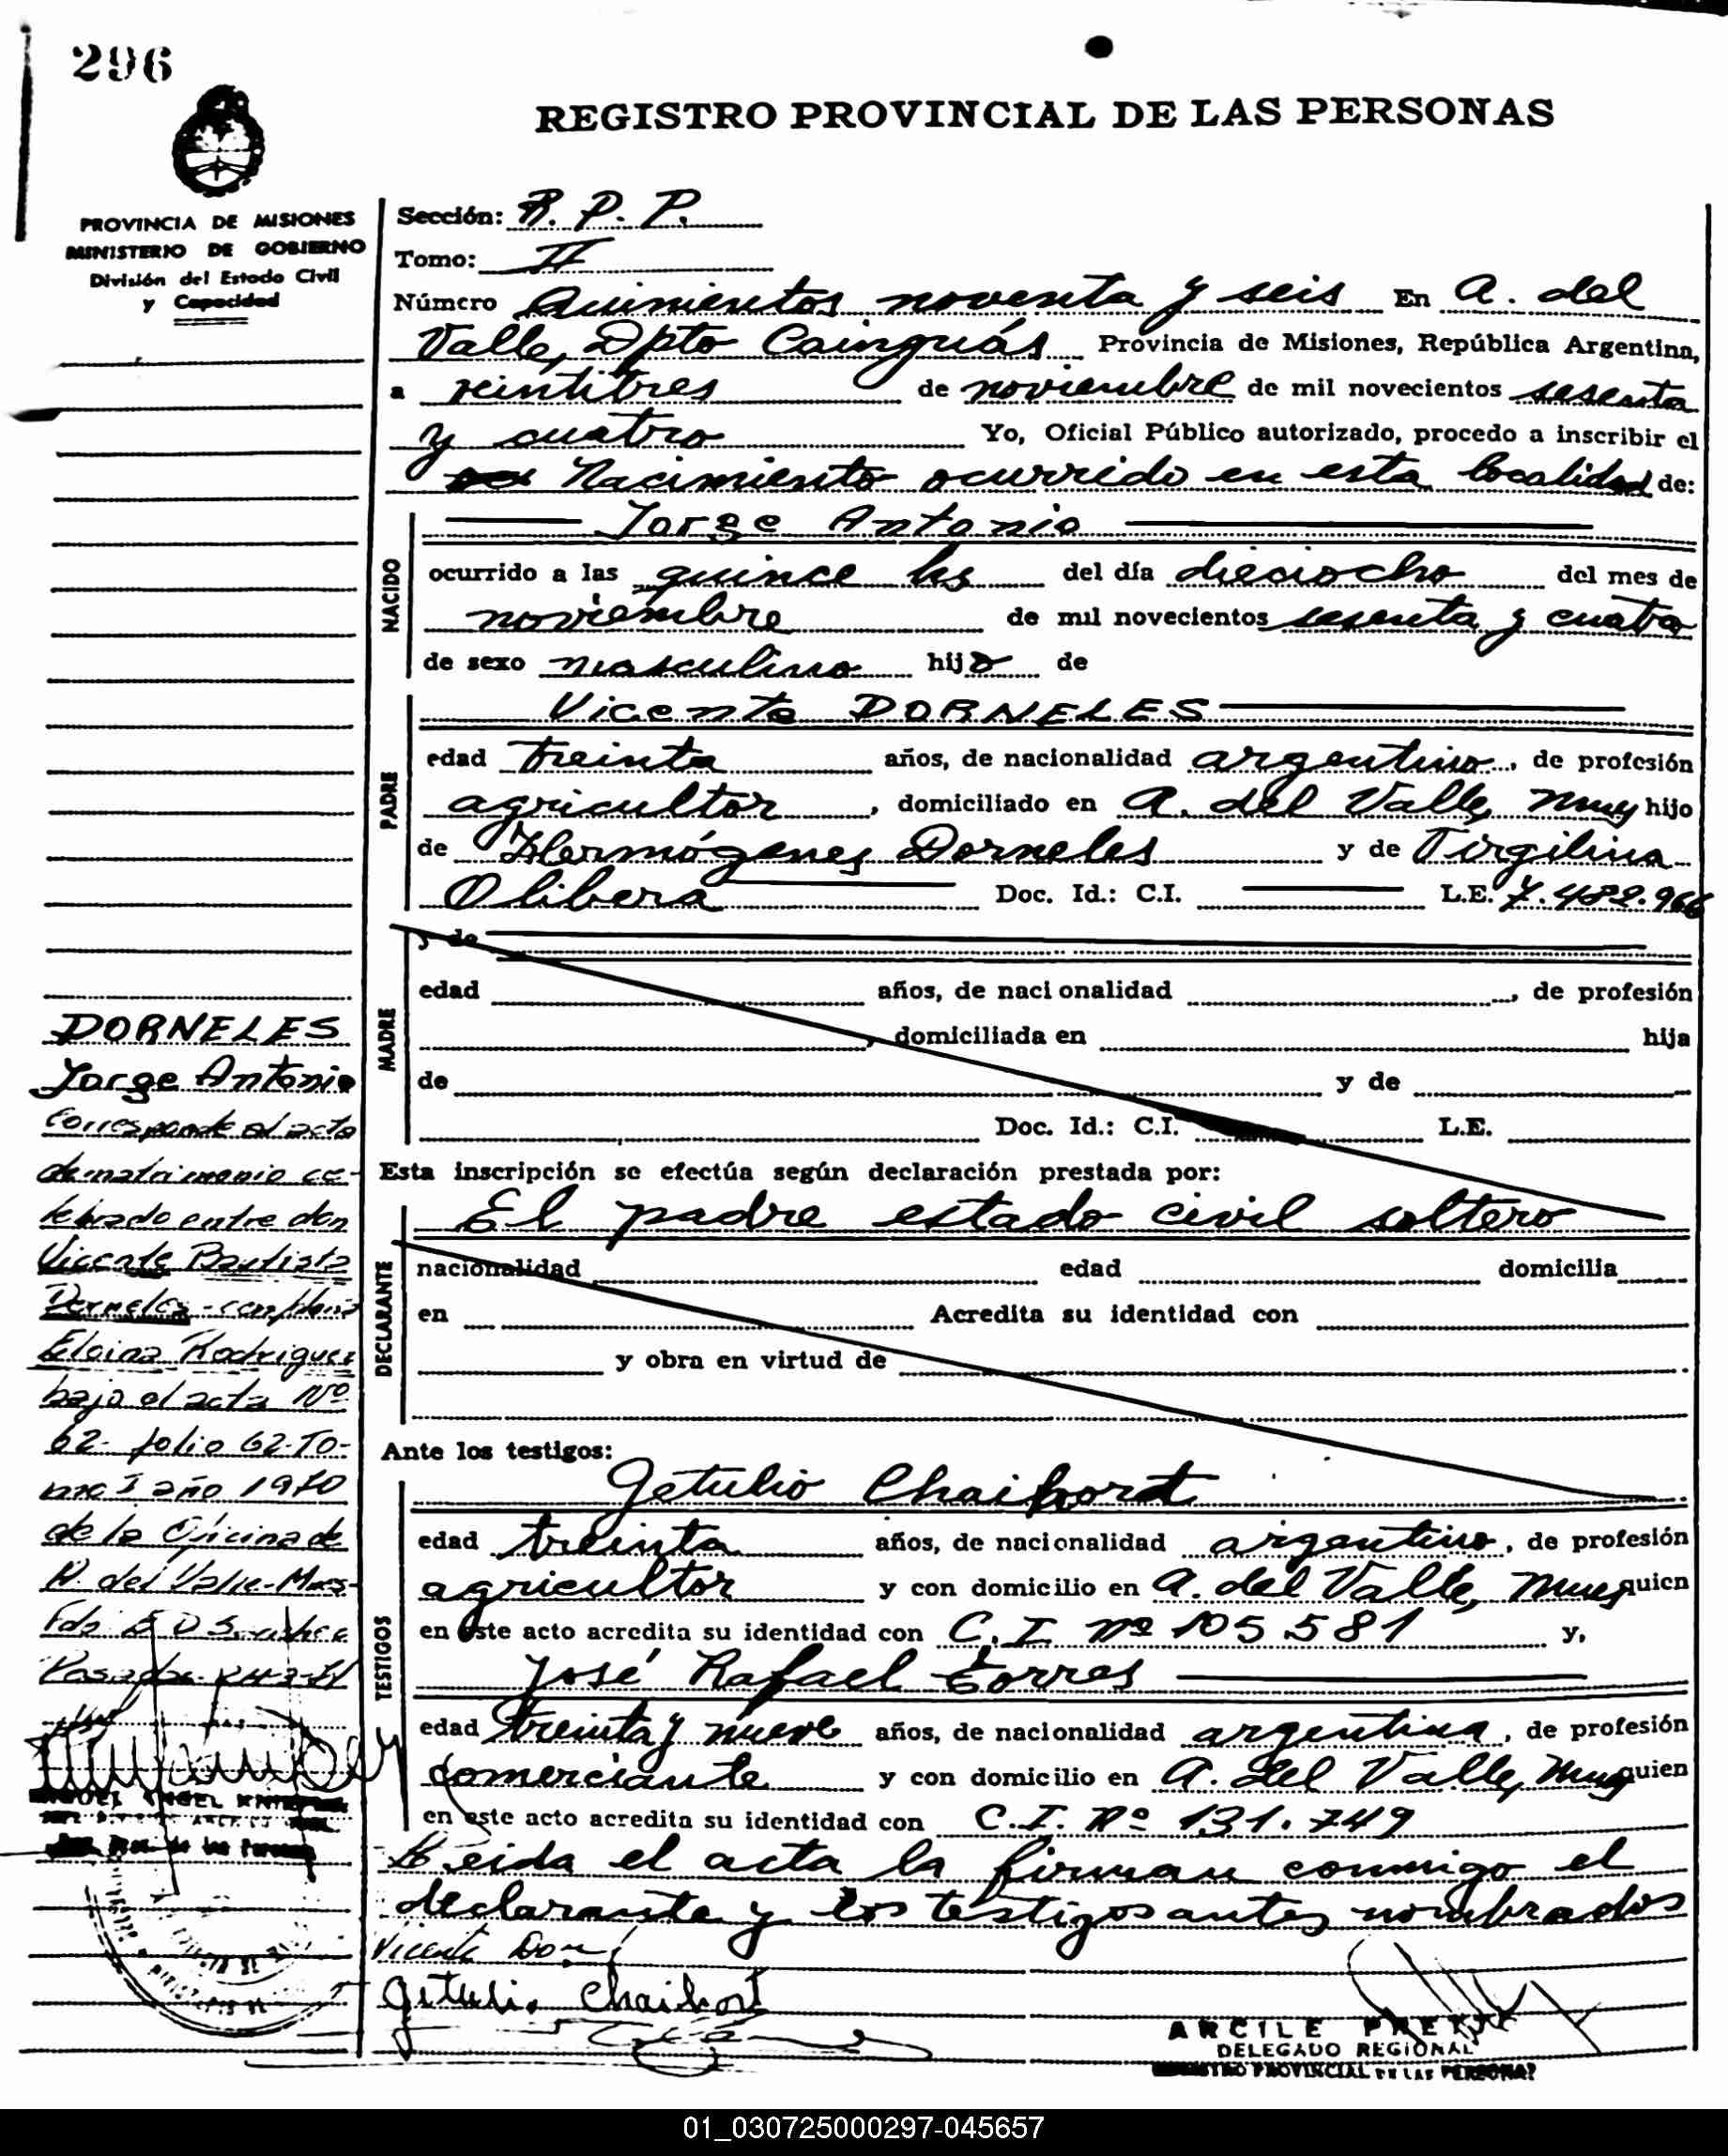 296
REGISTRO PROVINCIAL DE LAS PERSONAS
PROVINCIA DE MISIONES
MINISTERIO DE GOBIERNO
División del Estado Civil
y Capacidad
Sección: R. P. P.
Tomo: II
Número Quinientos noventa y seis En A. del
Valle, Dpto Cainguás Provincia de Misiones, República Argentina,
a veintitres de noviembre de mil novecientos sesenta
y cuatro Yo, Oficial Público autorizado, procedo a inscribir el
Nacimiento ocurrido en esta localidad de:
NACIDO
Jorge Antonio
ocurrido a las quince hs del día dieciocho del mes de
noviembre de mil novecientos sesenta y cuatro
de sexo masculino hijo de
PADRE
Vicente DORNELES
edad treinta años, de nacionalidad argentino, de profesión
agricultor, domiciliado en A. del Valle, Mnes hijo
de Hermógenes Dorneles y de Virgilina
Olibera Doc. Id.: C.I. L.E. 7.482.966
MADRE
y de
edad años, de nacionalidad , de profesión
, domiciliada en hija
de y de
Doc. Id.: C.I. L.E.
Esta inscripción se efectúa según declaración prestada por:
DECLARANTE
El padre estado civil soltero
nacionalidad edad domicilia
en Acredita su identidad con
y obra en virtud de
Ante los testigos:
TESTIGOS
Getulio Chaibort
edad treinta años, de nacionalidad argentino, de profesión
agricultor y con domicilio en A. del Valle, Mnes quien
en este acto acredita su identidad con C. I. nº 105.581 y,
José Rafael Torres
edad treinta y nueve años, de nacionalidad argentina, de profesión
comerciante y con domicilio en A. del Valle, Mnes quien
en este acto acredita su identidad con C.I. Nº 131.749
Leida el acta la firman conmigo el
declarante y los testigos antes nombrados
Vicente Dor
Getulio Chaibort
ARCILE
DELEGADO REGIONAL
REGISTRO PROVINCIAL DE LAS PERSONAS
DORNELES
Jorge Antonio
Corresponde al acta
de matrimonio ce-
lebrado entre don
Vicente Bautista
Dorneles - con doña
Eloina Rodriguez
bajo el acta Nº
62- folio 62- To-
mo I año 1970
de la Oficina de
A. del Valle- Mnes-
Fdo
Posadas
01_030725000297-045657